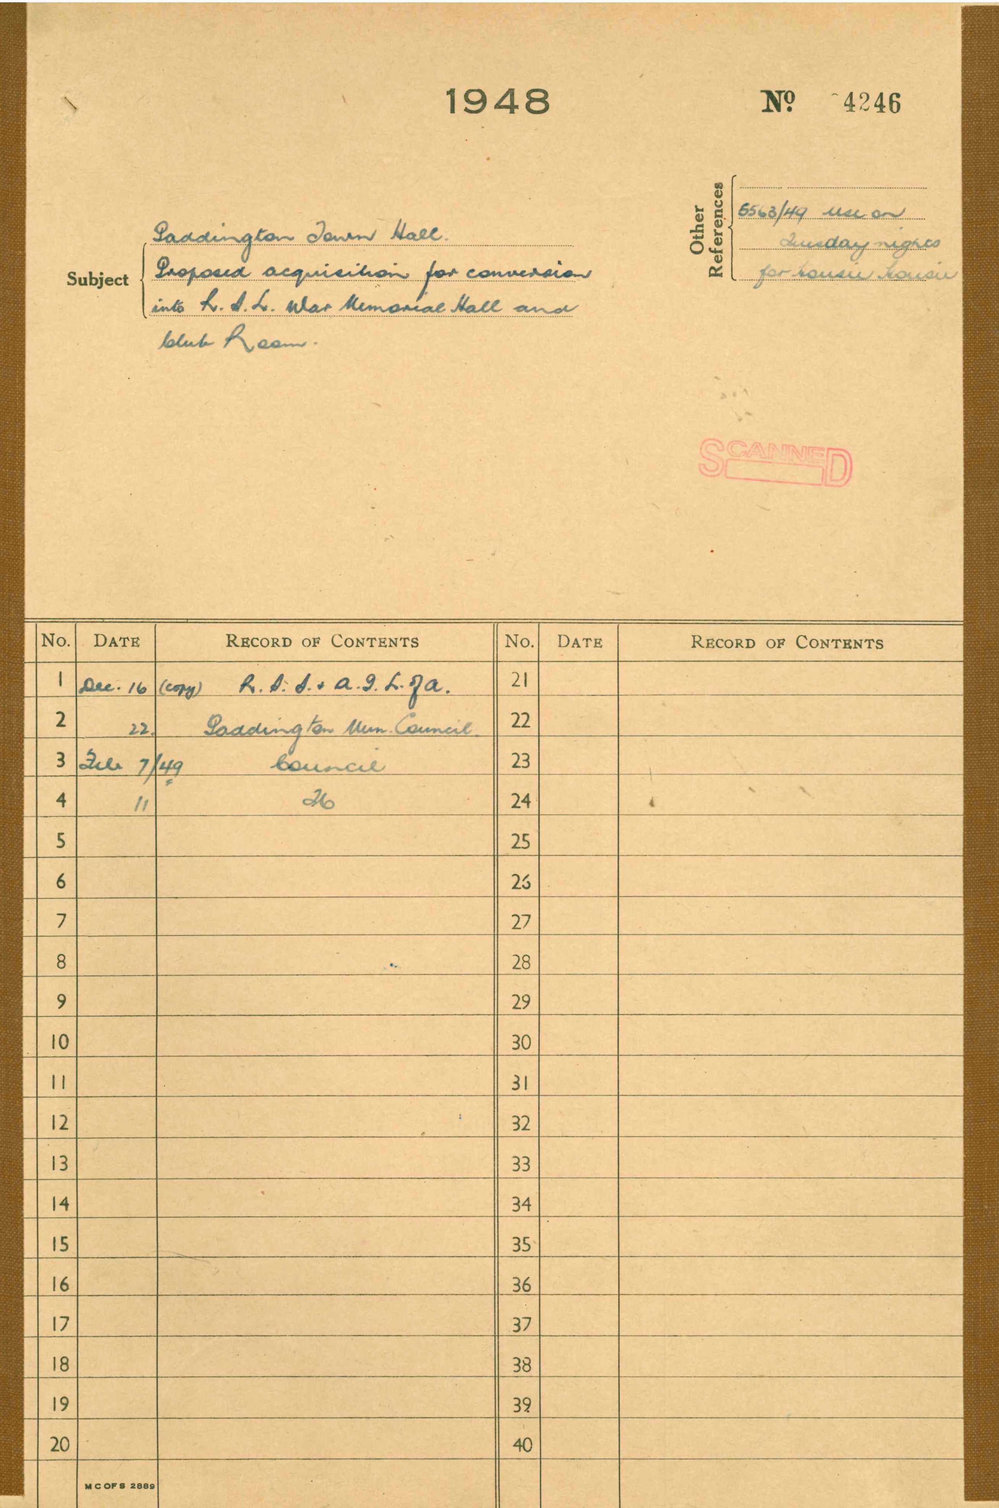 1948
Nº 4246
Other References
5563/49 use on
Tuesday nights
for housie housie
Subject
Paddington Town Hall.
Proposed acquisition for conversion
into R.S.L. War Memorial Hall and
Club Room.
SCANNED
No. DATE RECORD OF CONTENTS No. DATE RECORD OF CONTENTS
1 Dec. 16 (copy) R.S.S. & A.I.L. of A. 21
2 22. Paddington Mun. Council. 22
3 Feb 7/49 Council 23
4 11 24
5 25
6 26
7 27
8 28
9 29
10 30
11 31
12 32
13 33
14 34
15 35
16 36
17 37
18 38
19 39
20 40
M C OF S 2889